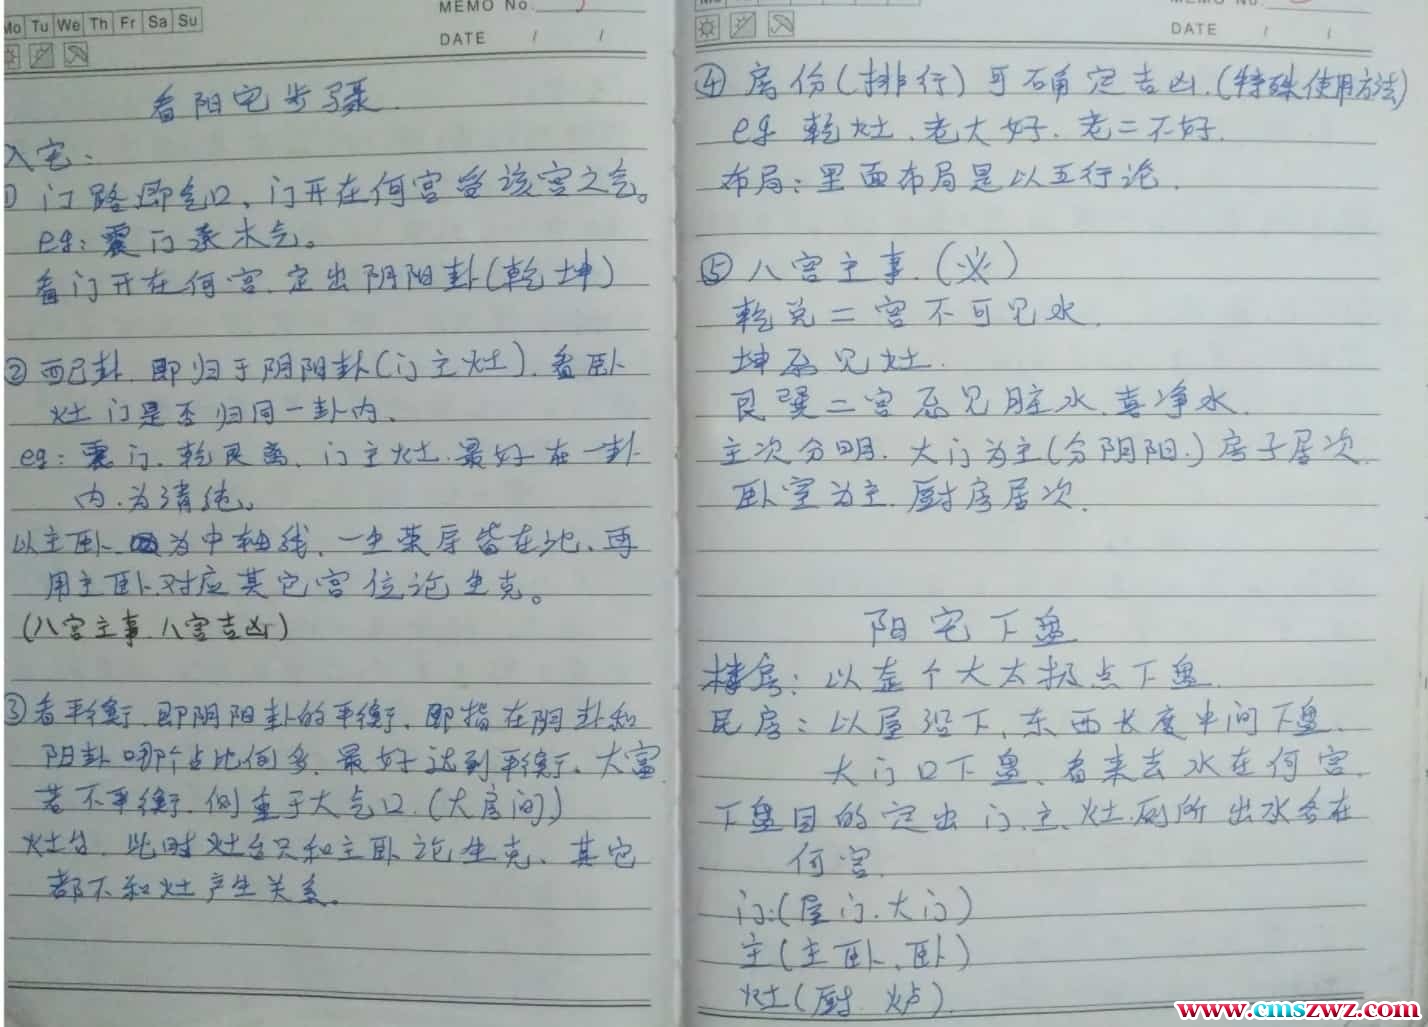 Mo Tu We Th Fr Sa Su
MEMO No.
DATE / /
看阳宅步骤
入宅:
① 门路即气口、门开在何宫受该宫之气。
eg: 震门承木气。
看门开在何宫.定出阴阳卦(乾坤)
② 配卦.即归于阴阳卦(门主灶).看卧
灶门是否归同一卦内.
eg: 震门.乾艮离、门主灶.最好在一卦
内.为清纯。
以主卧 为中轴线、一生荣辱皆在此、再
用主卧对应其它宫位论生克。
(八宫主事.八宫吉凶)
③看平衡.即阴阳卦的平衡.即指在阴卦和
阳卦哪个占比例多.最好达到平衡、大富.
若不平衡.侧重于大气口.(大房间)
灶台.此时灶台只和主卧论生克、其它
都不和灶产生关系.
MEMO No.
DATE / /
④ 房份(排行)可确定吉凶.(特殊使用方法)
eg 乾灶.老大好.老二不好.
布局:里面布局是以五行论.
⑤ 八宫主事.(必)
乾兑二宫不可见水.
坤忌见灶.
艮巽二宫忌见脏水.喜净水.
主次分明.大门为主(分阴阳.)房子居次
卧室为主.厨房居次.
阳宅下盘
楼房:以整个大太极点下盘.
民房:以屋沿下、东西长度中间下盘.
大门口下盘、看来去水在何宫.
下盘目的定出门.主.灶.厕所出水各在
何宫.
门:(屋门.大门)
主(主卧、卧)
灶(厨.炉).
www.cmszwz.com